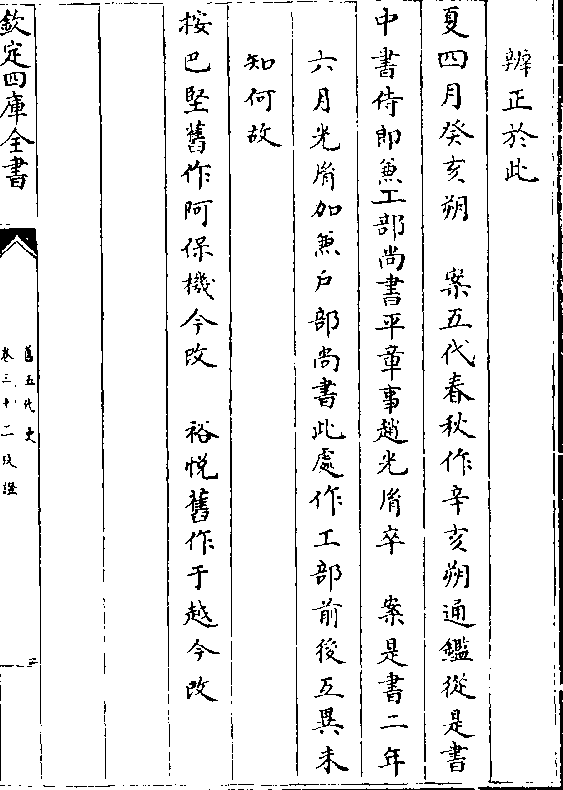 辨正於此
夏四月癸亥朔　案五代春秋作辛亥朔通鑑從是書
中書侍郎兼工部尚書平章事趙光胤卒　案是書二年
六月光胤加兼戶部尚書此處作工部前後互異未
知何故
按巴堅舊作阿保機今改　裕悅舊作于越今改
欽定四庫全書
舊五代史
卷三十二攷證
二